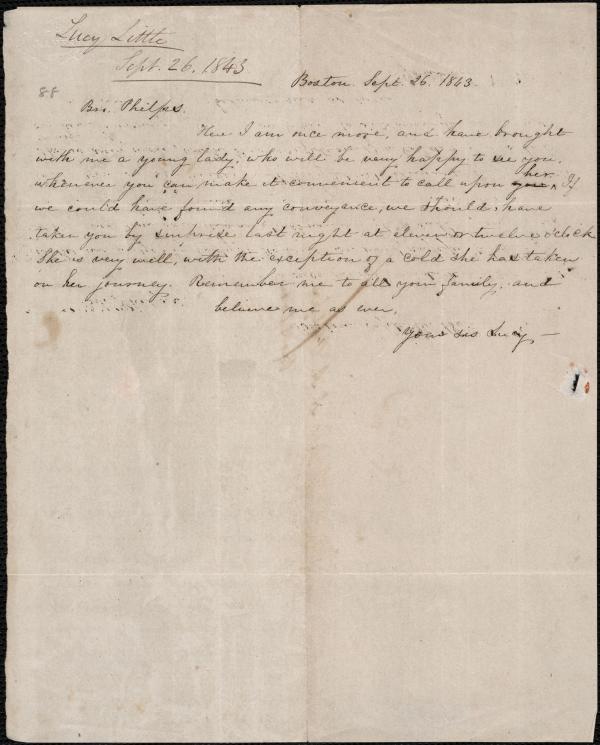 Lucy Little
Sept. 26, 1843
88
Boston Sept. 26, 1843.
Bro. Phelps.
Here I am once more, and have brought
with me a young lady, who will be very happy to see you,
her
whenever you can make it convenient to call upon you. If
we could have found any conveyance, we should have
taken you by surprise last night at eleven or twelve o'clock
She is very well, with the exception of a cold she has taken
on her journey. Remember me to all your family, and
believe me as ever,
Your sis Lucy, —